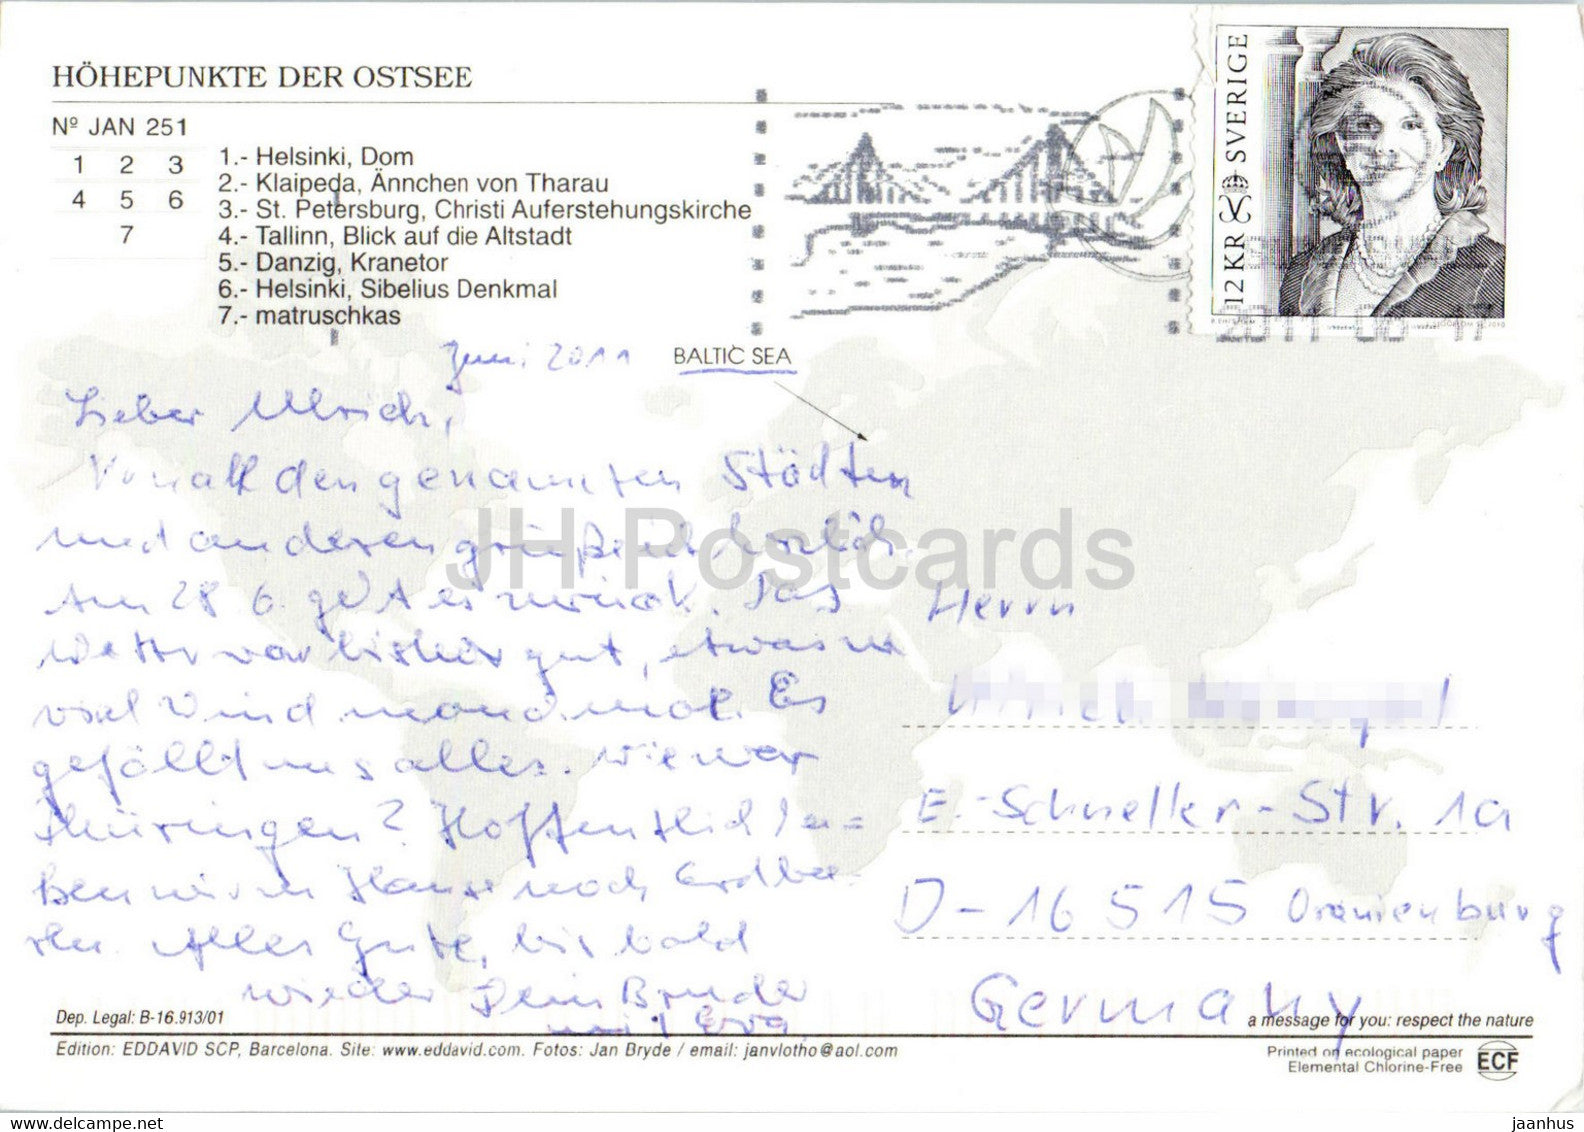 HÖHEPUNKTE DER OSTSEE
Nº JAN 251
1 2 3
4 5 6
7
1.- Helsinki, Dom
2.- Klaipeda, Ännchen von Tharau
3.- St. Petersburg, Christi Auferstehungskirche
4.- Tallinn, Blick auf die Altstadt
5.- Danzig, Kranetor
6.- Helsinki, Sibelius Denkmal
7.- matruschkas
12 KR SVERIGE
Juni 2011
BALTIC SEA
Lieber Ulrich,
Von all den genannten Städten
und anderen grüße ich herzlich.
Am 28.6. geht es zurück. Das
Wetter war bisher gut, etwas zu
viel Wind manchmal. Es
gefällt uns alles. Wie war
Thüringen? Hoffentlich ha=
ben wir zu Hause noch Erdbee-
ren. Alles Gute, bis bald
wieder Dein Bruder
mit Eva
Herrn
Ulrich
E.-Schneller-Str. 1a
D-16515 Oranienburg
Germany
Dep. Legal: B-16.913/01
a message for you: respect the nature
Edition: EDDAVID SCP, Barcelona. Site: www.eddavid.com. Fotos: Jan Bryde / email: janvlotho@aol.com
Printed on ecological paper
Elemental Chlorine-Free
ECF
JH Postcards
www.delcampe.net
jaanhus